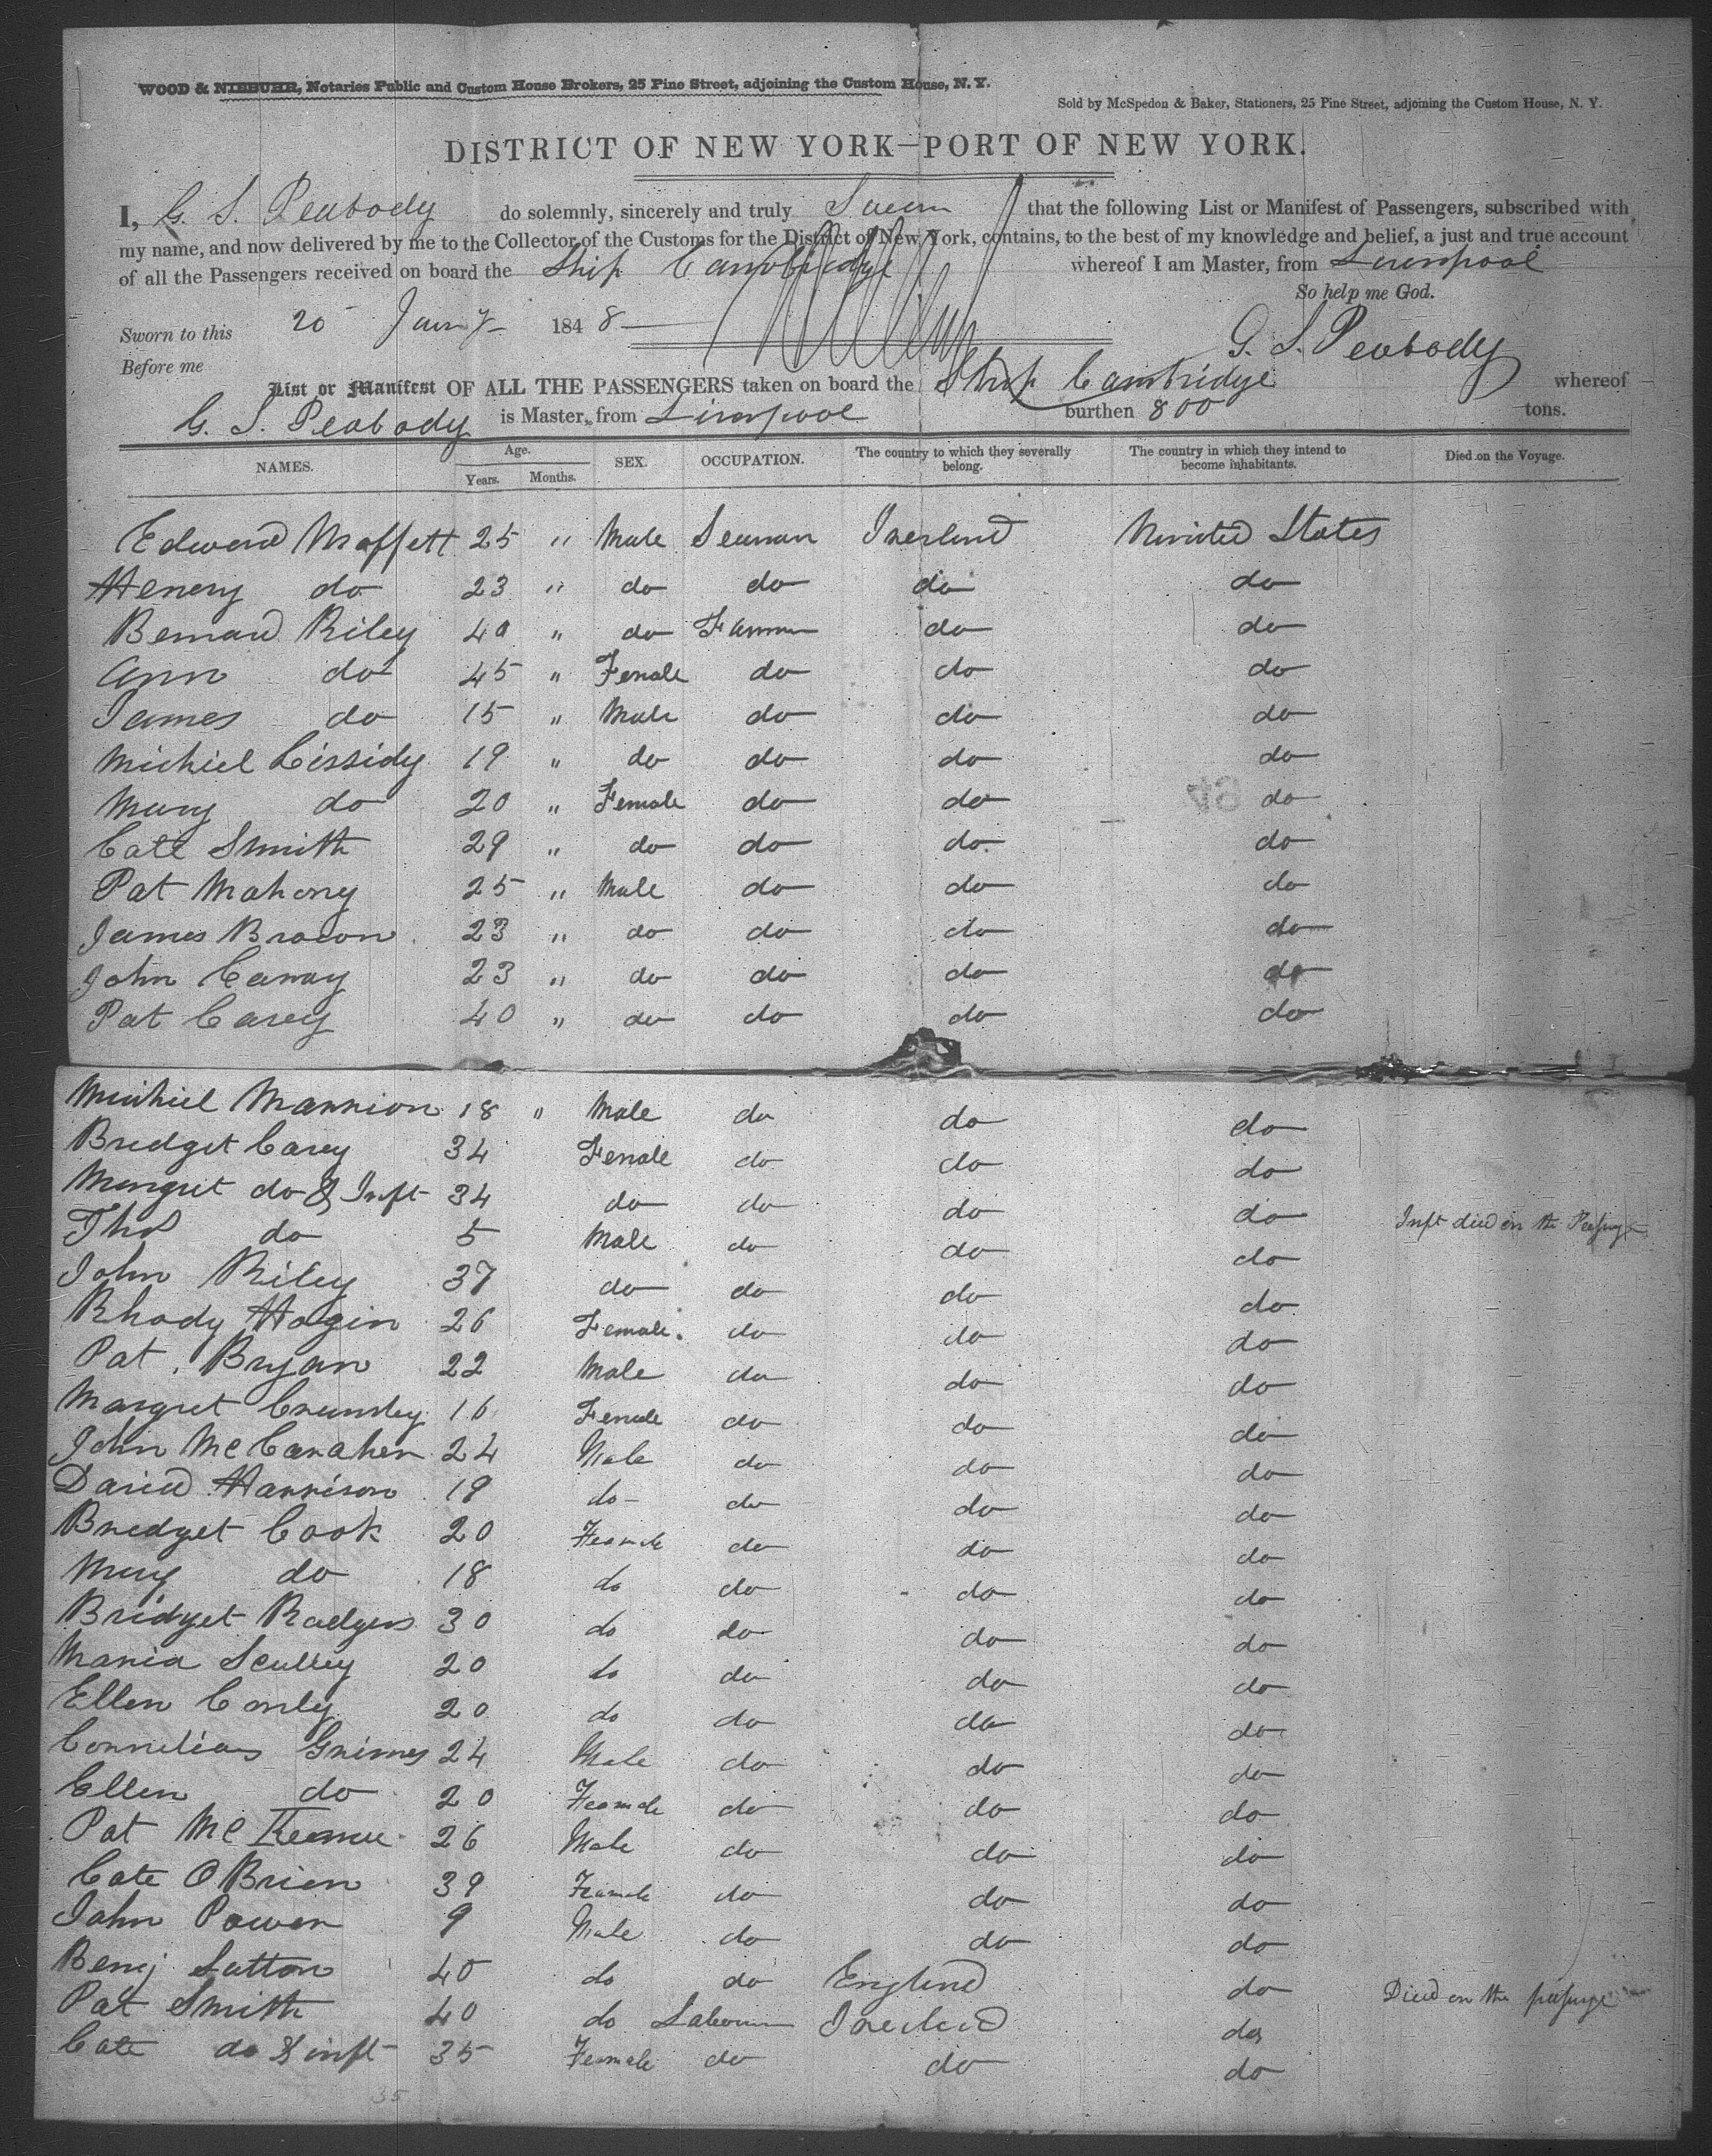 WOOD & NIEBUHR, Notaries Public and Custom House Brokers, 25 Pine Street, adjoining the Custom House, N. Y.
Sold by McSpedon & Baker, Stationers, 25 Pine Street, adjoining the Custom House, N. Y.
DISTRICT OF NEW YORK—PORT OF NEW YORK.
I, G. S. Peabody do solemnly, sincerely and truly that the following List or Manifest of Passengers, subscribed with
my name, and now delivered by me to the Collector of the Customs for the District of New York, contains, to the best of my knowledge and belief, a just and true account
of all the Passengers received on board the Ship Cambridge whereof I am Master, from Liverpool
So help me God.
Sworn to this 20 Jany 1848
G. S. Peabody
Before me
List or Manifest OF ALL THE PASSENGERS taken on board the Ship Cambridge whereof
G. S. Peabody is Master, from Liverpool burthen 800 tons.
NAMES. Age. Years. Months. SEX. OCCUPATION. The country to which they severally belong. The country in which they intend to become inhabitants. Died on the Voyage.
Edward Moffett 25 " Male Seaman Ireland United States
Henery do 23 " do do do do
Bernard Riley 40 " do Farmer do do
Ann do 45 " Female do do do
James do 15 " Male do do do
Michiel Cissidy 19 " do do do do
Mary do 20 " Female do do do
Cate Smith 29 " do do do do
Pat Mahony 25 " Male do do do
James 23 " do do do do
John 23 " do do do do
Pat Carey 40 " do do do do
Michiel Mannion 18 " Male do do do
Bredget Carey 34 Female do do do
Margret do & Inft 34 do do do do Inft died on the Passage
Thos do 5 Male do do do
John Riley 37 do do do do
Rhody Hogin 26 Female do do do
Pat Bryan 22 Male do do do
Margret 16 Female do do do
John McCanahen 24 Male do do do
David Harrison 19 do do do do
Bredget Cook 20 Female do do do
Mary do 18 do do do do
Bridget Rodgers 30 do do do do
Maria Sculley 20 do do do do
Ellen Conly 20 do do do do
Cornelius Grimes 24 Male do do do
Ellen do 20 Female do do do
Pat 26 Male do do do
Cate OBrien 39 Female do do do
John Power 9 Male do do do
Benj Sutton 40 do do England do Died on the passage
Pat Smith 40 do Laborer Ireland do
Cate do & inft 35 Female do do do
35